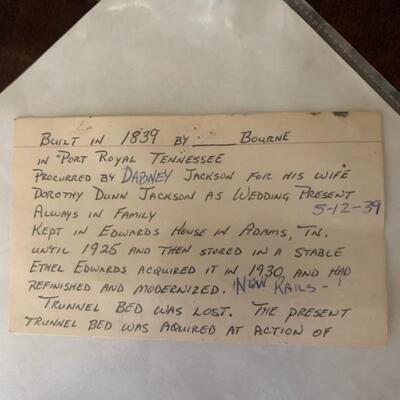 Built in 1839 by ____ Bourne
in Port Royal Tennessee
Procurred by Dabney Jackson for his wife
Dorothy Dunn Jackson as Wedding Present
5-12-39
Always in Family
Kept in Edwards House in Adams, Tn.
until 1925 and then stored in a stable
Ethel Edwards acquired it in 1930 and had
refinished and modernized. New Rails -
Trunnel Bed was lost. The present
trunnel bed was aquired at action of